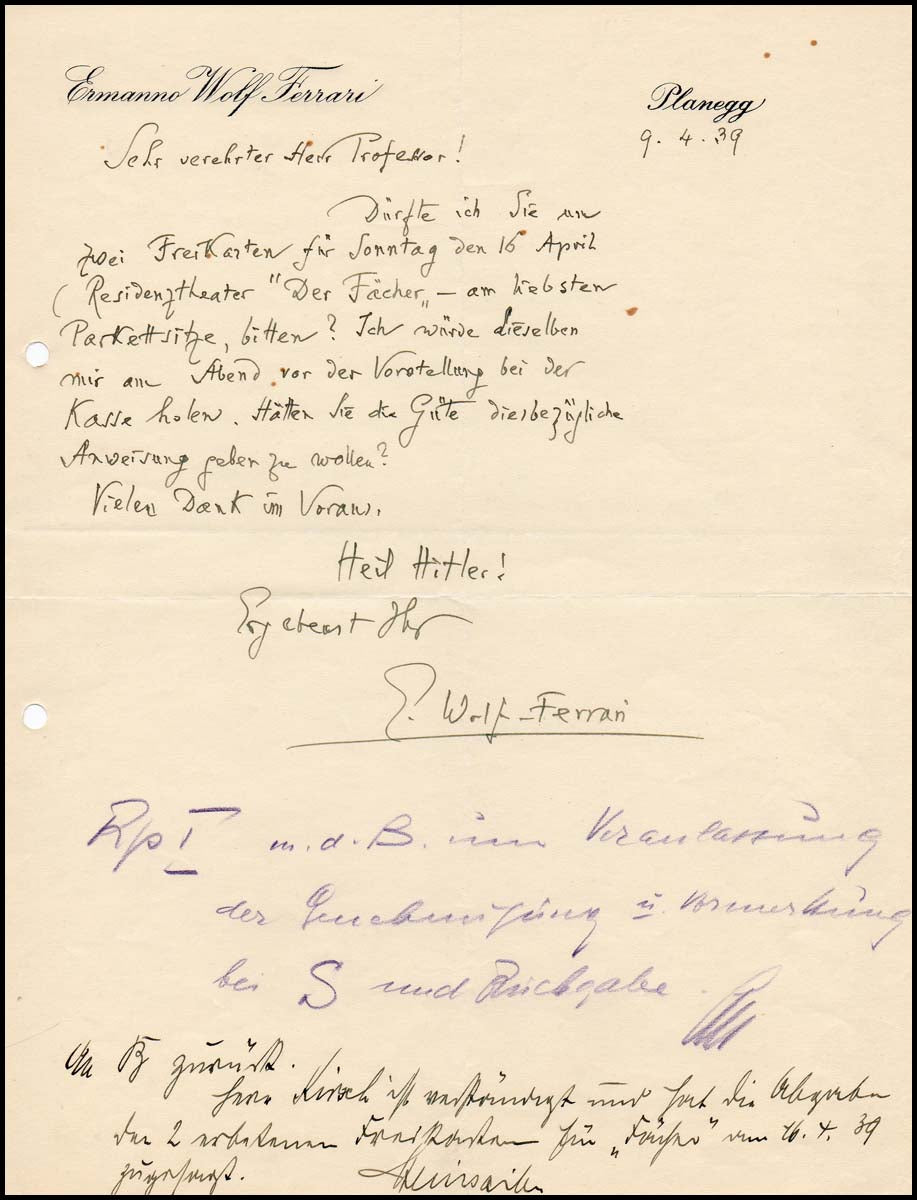 Ermanno Wolf Ferrari
Planegg
9. 4. 39
Sehr verehrter Herr Professor!
Dürfte ich Sie um
zwei Freikarten für Sonntag den 16 April
(Residenztheater "Der Fächer„ – am liebsten
Parkettsitze, bitten? Ich würde dieselben
mir am Abend vor der Vorstellung bei der
Kasse holen. Hätten Sie die Güte diesbezügliche
Anweisung geben zu wollen?
Vielen Dank im Voraus.
Heil Hitler!
Ergebenst Ihr
E. Wolf-Ferrari
Rp I m. d. B. um Veranlassung
der Genehmigung u. Vormerkung
bei S und Rückgabe.
An B zurück.
Herr ist verständigt und hat die Abgabe
der 2 erbetenen Freikarten für „Fächer" am 16. 4. 39
zugesagt.